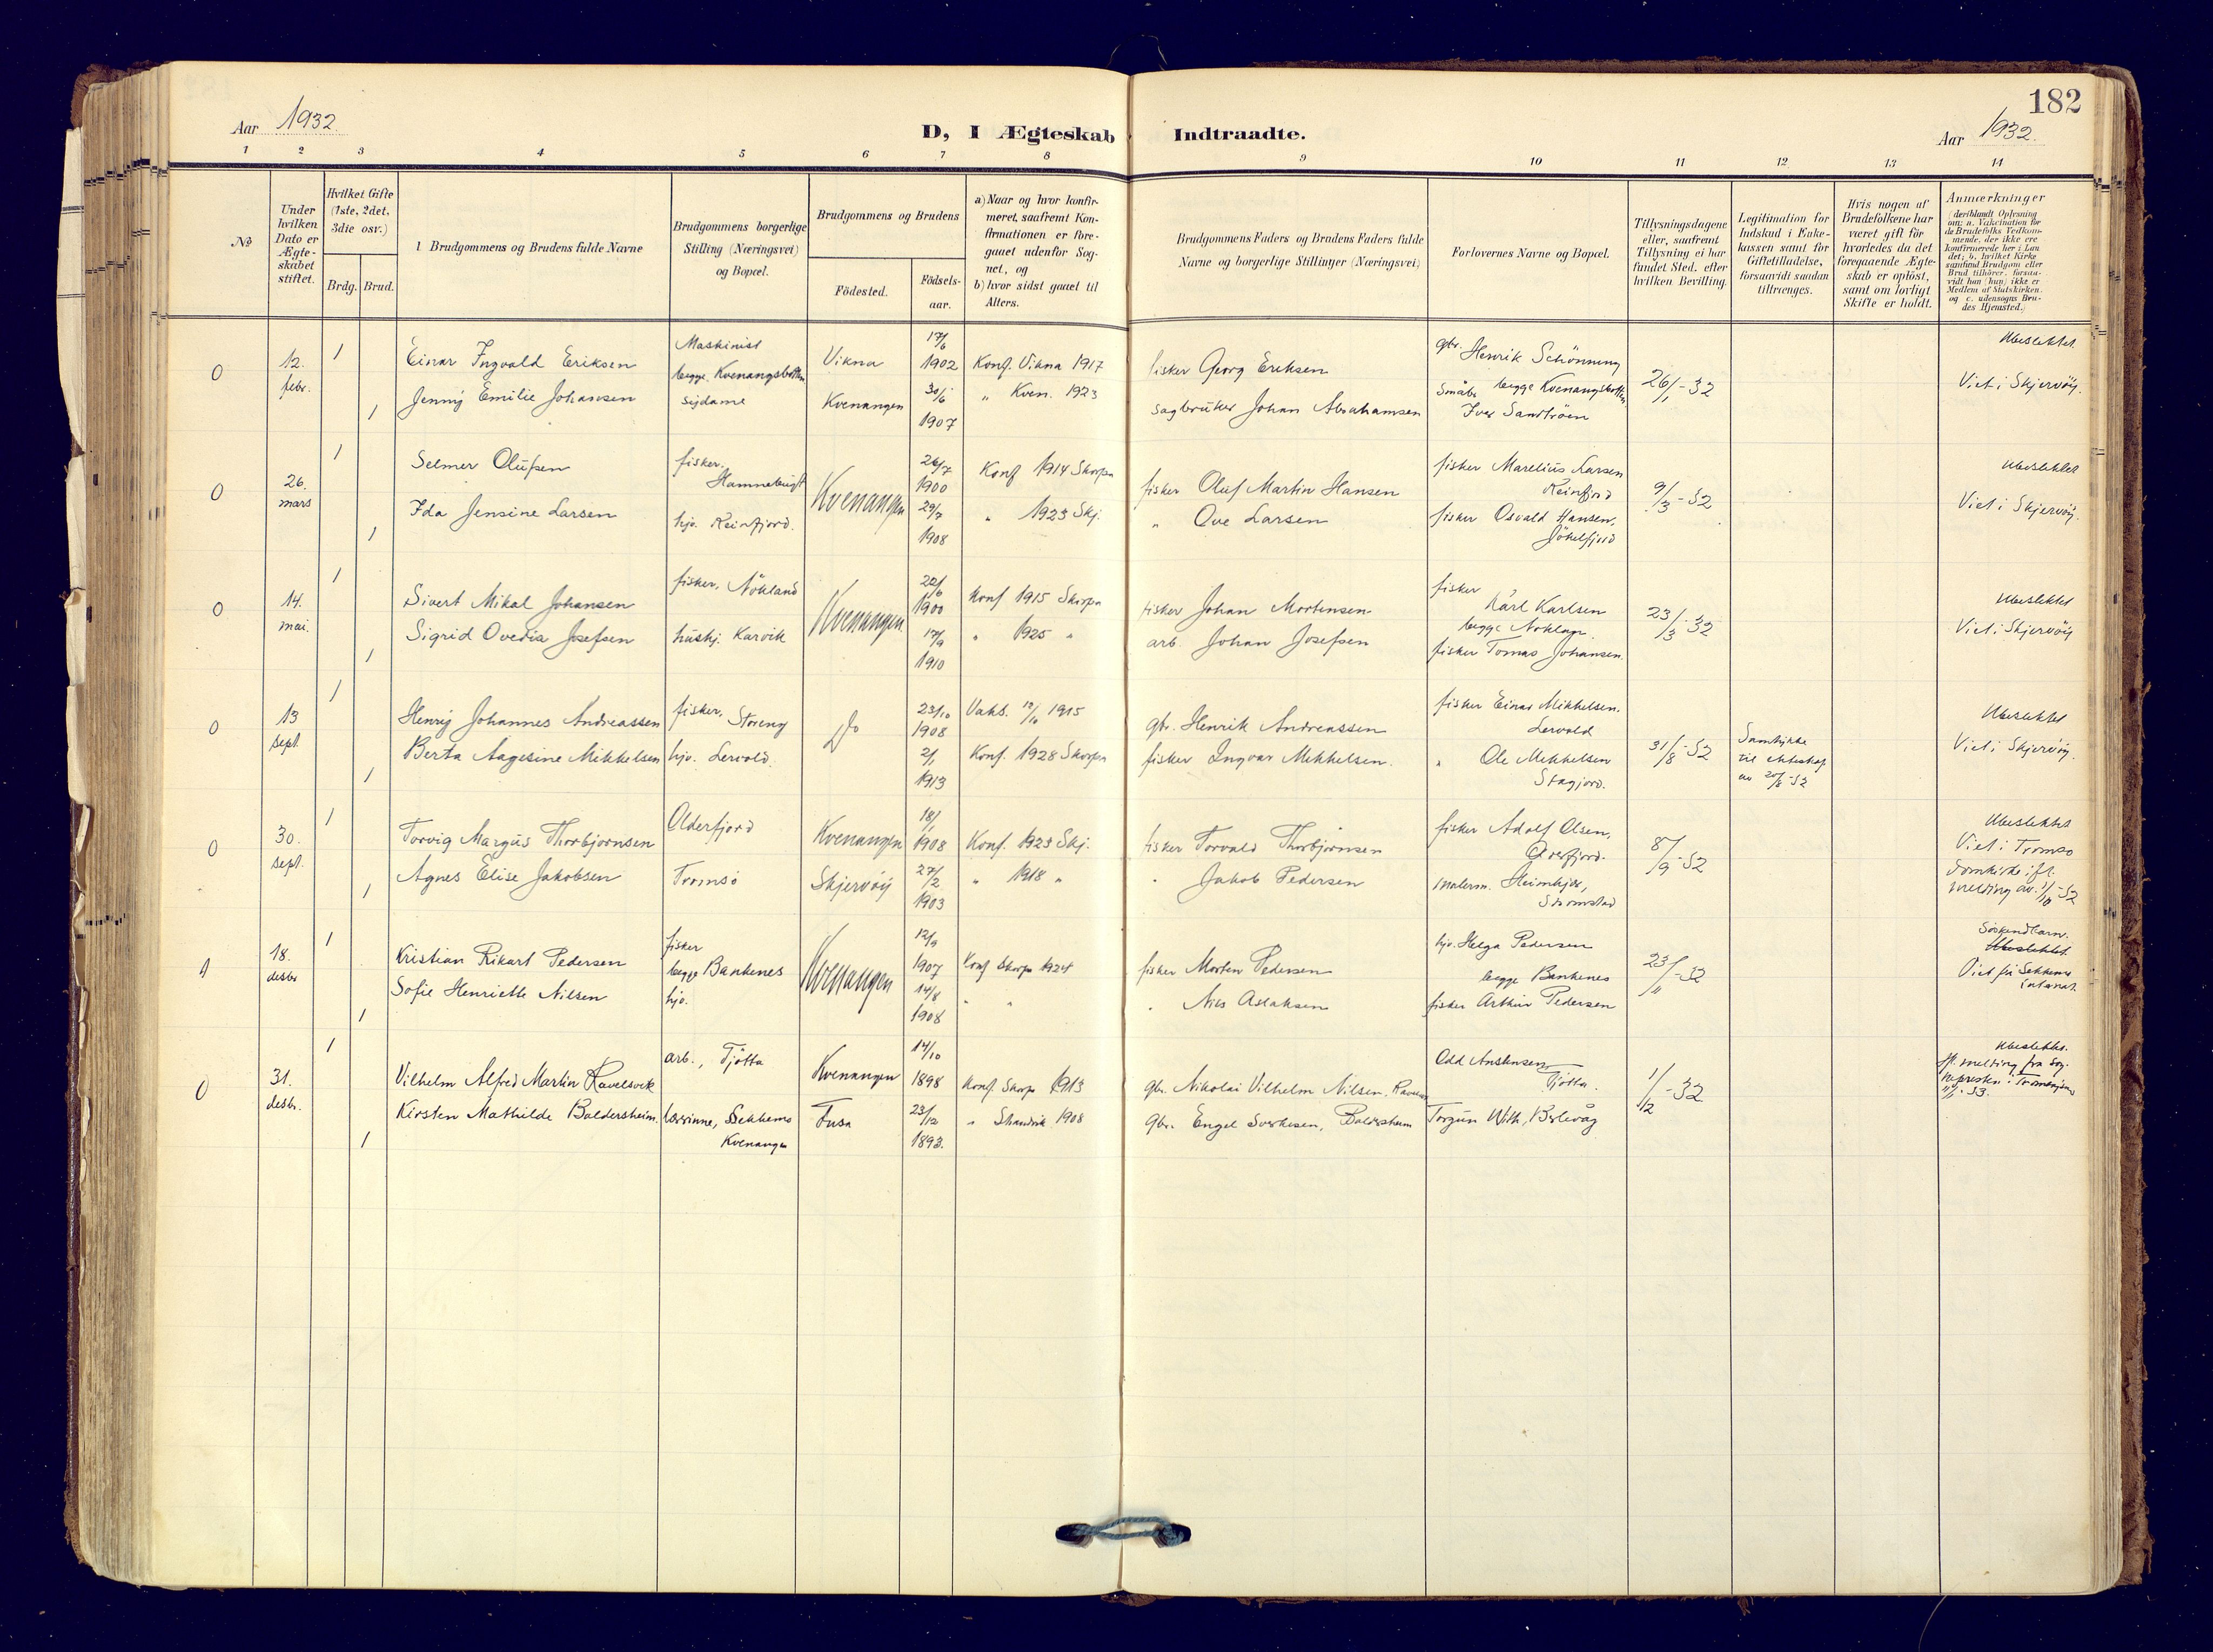 182
Aar 1932.
D, I Ægteskab Indtraadte.
Aar 1932.
1 2 3 4 5 6 7 8 9 10 11 12 13 14
No
Under hvilken Dato er Ægteskabet stiftet.
Hvilket Gifte (1ste, 2det, 3die osv.)
Brdg. Brud.
Brudgommens og Brudens fulde Navne
Brudgommens borgerlige Stilling (Næringsvei) og Bopæl.
Brudgommens og Brudens
Födested.
Födselsaar.
a) Naar og hvor konfirmeret, saafremt Konfirmationen er foregaaet udenfor Sognet, og
b) hvor sidst gaaet til Alters.
Brudgommens Faders og Brudens Faders fulde Navne og borgerlige Stillinger (Næringsvei)
Forlovernes Navne og Bopæl.
Tillysningsdagene eller, saafremt Tillysning ei har fundet Sted, efter hvilken Bevilling.
Legitimation for Indskud i Enkekassen samt for Giftetilladelse, forsaavidt saadan tiltrænges.
Hvis nogen af Brudefolkene har været gift för hvorledes da det foregaaende Ægteskab er oplöst, samt om lovligt Skifte er holdt.
Anmærkninger
(deriblandt Oplysning om: a. Vakcination for de Brudefolks Vedkommende, der ikke ere konfirmerede her i Landet; b. hvilket Kirkesamfund Brudgom eller Brud tilhörer, forsaavidt han (hun) ikke er Medlem af Statskirken, og c. udensogns Brudes Hjemsted.)
0 12. febr. 1 Einar Ingvald Eriksen Maskinist Vikna 17/6 1902 Konf. Vikna 1917 fisker Georg Eriksen gbr. Henrik Schönning 26/1-32 Ubeslektet.
begge Kvenangsbotten
1 Jenny Emilie Johansen sydame Kvenangen 30/6 1907 " Kven. 1923 sagbruker Johan Abrahamsen småbr. begge Kvenangsbotten Viet i Skjervöy.
0 26. mars 1 Selmer Olufsen fisker. Hamnebugt Kvenangen 26/7 1900 Konf 1914 Skorpa fisker Oluf Martin Hansen fisker Marelius Larsen Reinfjord 9/3-32 Ubeslektet
1 Ida Jensine Larsen hjv. Reinfjord. 29/7 1908 " 1923 Skj. " Ove Larsen fisker Osvald Hansen, Jökelfjord Viet i Skjervöy.
0 14. mai. 1 Sivert Mikal Johansen fisker, Nökland Kvenangen 1900 Konf 1915 Skorpa fisker Johan Mortensen fisker Karl Karlsen 23/3-32 Ubeslektet
1 Sigrid Ovedia Josefsen hushj. Karvik 17/9 1910 " 1925 " arb. Johan Josefsen fisker Tomas Johansen. Viet i Skjervöy
0 13 sept. 1 Henry Johannes Andreassen fisker, Storeng Do 23/10 1908 Vaks. 1915 gbr. Henrik Andreassen fisker Einar Mikkelsen. 31/8-32 Samtykke til ekteskap av 20/8-32 Ubeslektet
1 Berta Aagesine Mikkelsen hjv. 2/1 1913 Konf. 1928 Skorpa fisker Ingvar Mikkelsen. " Ole Mikkelsen Viet i Skjervöy.
0 30. sept. 1 Torvig Margus Thorbjornsen Olderfjord Kvenangen 18/1 1908 Konf. 1923 Skj. fisker Torvald Thorbjörnsen fisker Adolf Olsen, 8/9-32 Ubeslektet
1 Agnes Elise Jakobsen Tromsö Skjervöy 27/2 1903 " 1918 " " Jakob Pedersen malerm. Strömstad Viet i Tromsö Domkirke ifl. melding av 1/10-32
1 18. desbr 1 Kristian Rikart Pedersen fisker Kvenangen 12/9 1907 Konf Skorpa 1924 fisker Morten Pedersen hjv. Helga Pedersen 23/11-32 Söskendbarn. Ubeslektet.
begge Bankenes begge Bankenes
1 Sofie Henriette Nilsen hjv. 14/8 1908 " " " Nils Aslaksen fisker Arthur Pedersen Viet på Sekkemo internat.
0 31. desbr. 1 Vilhelm Alfred Martin Ravelsvik arb., Tjötta Kvenangen 14/10 1898 Konf Skorpa 1913 gbr. Nikolai Vilhelm Nilsen, Odd Anstensen, Tjötta. 1/12-32 Ubeslektet.
1 Kirsten Mathilde Baldersheim lærerinne, Sekkemo Kvenangen Fusa 23/12 1893. " Strandvik 1908 gbr. Engel Sverkesen, Baldersheim Torgun With, Berlevåg ifl. melding fra